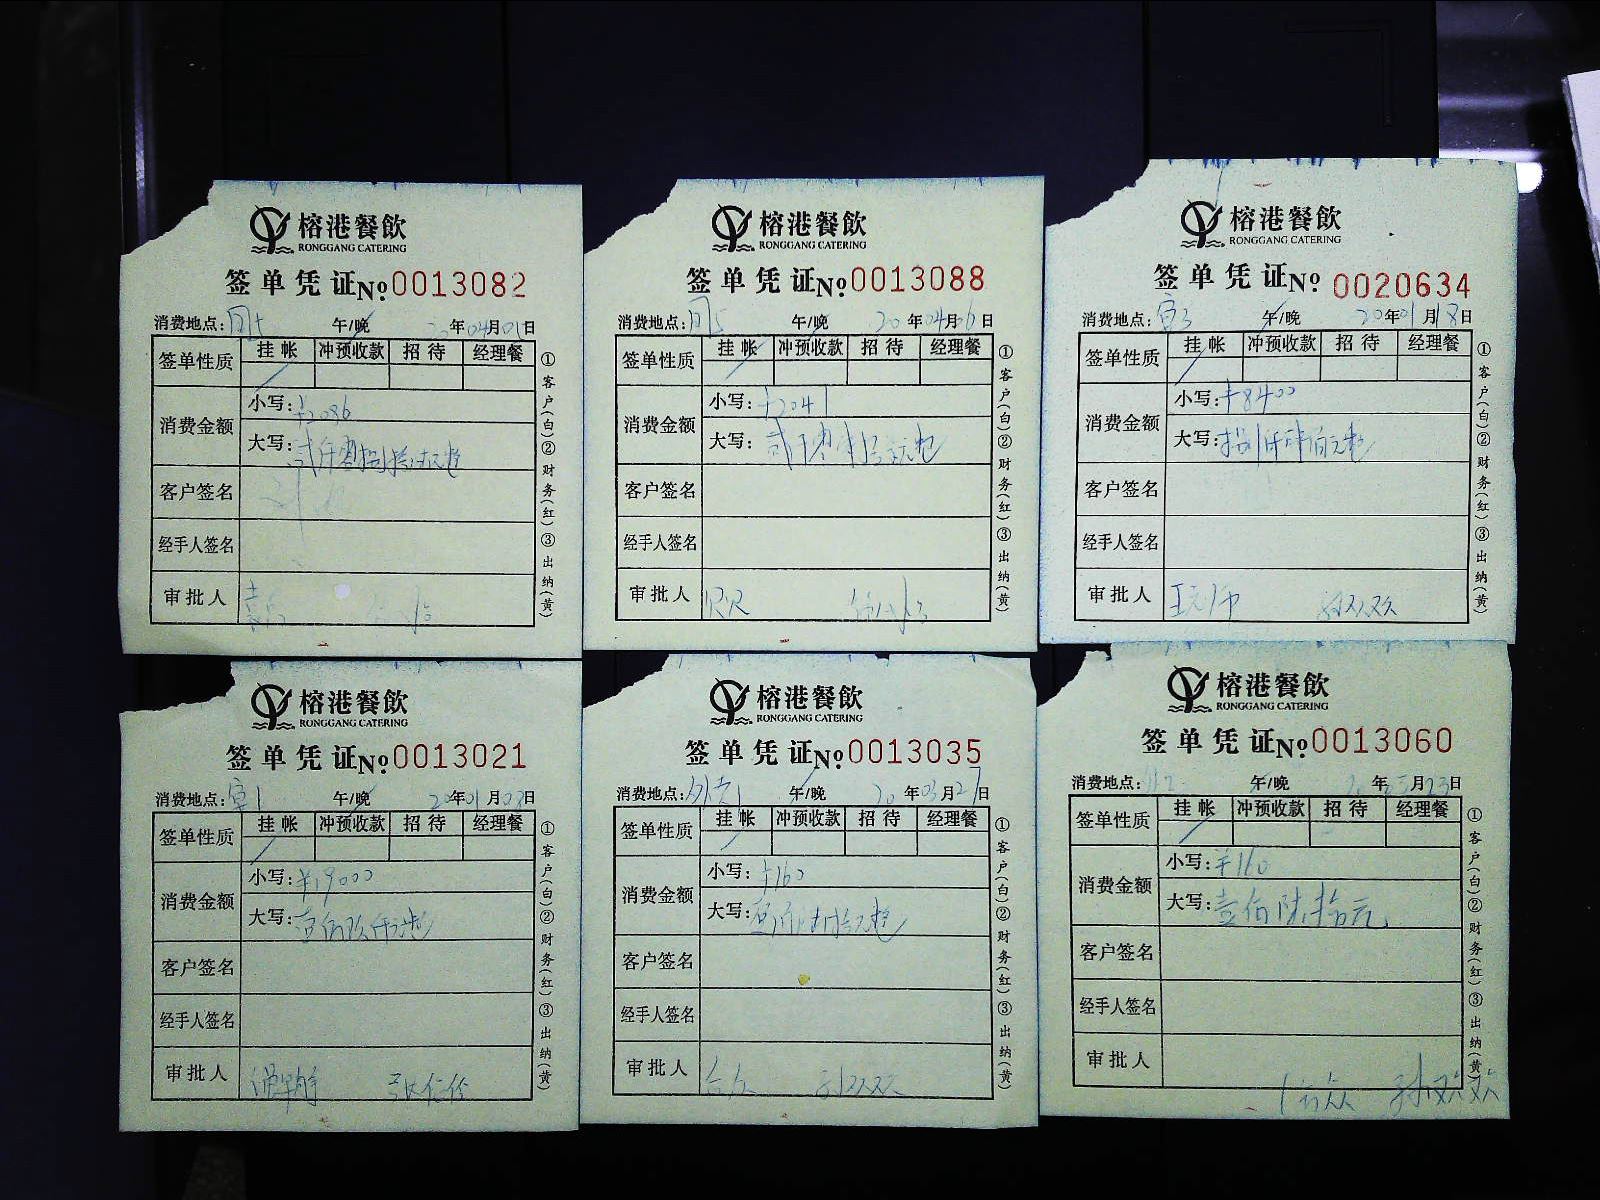 榕港餐飲
RONGGANG CATERING
签单凭证 No:0013082
消费地点: 午/晚 20年04月01日
签单性质 挂帐 冲预收款 招待 经理餐
消费金额 小写:¥2086
大写:贰仟零捌拾陆元整
客户签名
经手人签名
审批人
①客户(白)②财务(红)③出纳(黄)
榕港餐飲
RONGGANG CATERING
签单凭证 No:0013088
消费地点: 午/晚 20年04月06日
签单性质 挂帐 冲预收款 招待 经理餐
消费金额 小写:¥2041
大写:贰仟零肆拾壹元整
客户签名
经手人签名
审批人
①客户(白)②财务(红)③出纳(黄)
榕港餐飲
RONGGANG CATERING
签单凭证 No: 0020634
消费地点: 午/晚 20年01月18日
签单性质 挂帐 冲预收款 招待 经理餐
消费金额 小写:¥8400
大写:捌仟肆佰元整
客户签名
经手人签名
审批人 孙双双
①客户(白)②财务(红)③出纳(黄)
榕港餐飲
RONGGANG CATERING
签单凭证 No:0013021
消费地点: 午/晚 20年01月03日
签单性质 挂帐 冲预收款 招待 经理餐
消费金额 小写:¥19000
大写:壹佰玖仟元整
客户签名
经手人签名
审批人
①客户(白)②财务(红)③出纳(黄)
榕港餐飲
RONGGANG CATERING
签单凭证 No:0013035
消费地点: 午/晚 20年03月27日
签单性质 挂帐 冲预收款 招待 经理餐
消费金额 小写:¥160
大写:壹佰陆拾元整
客户签名
经手人签名
审批人 孙双双
①客户(白)②财务(红)③出纳(黄)
榕港餐飲
RONGGANG CATERING
签单凭证 No:0013060
消费地点: 午/晚 20年03月23日
签单性质 挂帐 冲预收款 招待 经理餐
消费金额 小写:¥160
大写:壹佰陆拾元
客户签名
经手人签名
审批人 孙双双
①客户(白)②财务(红)③出纳(黄)